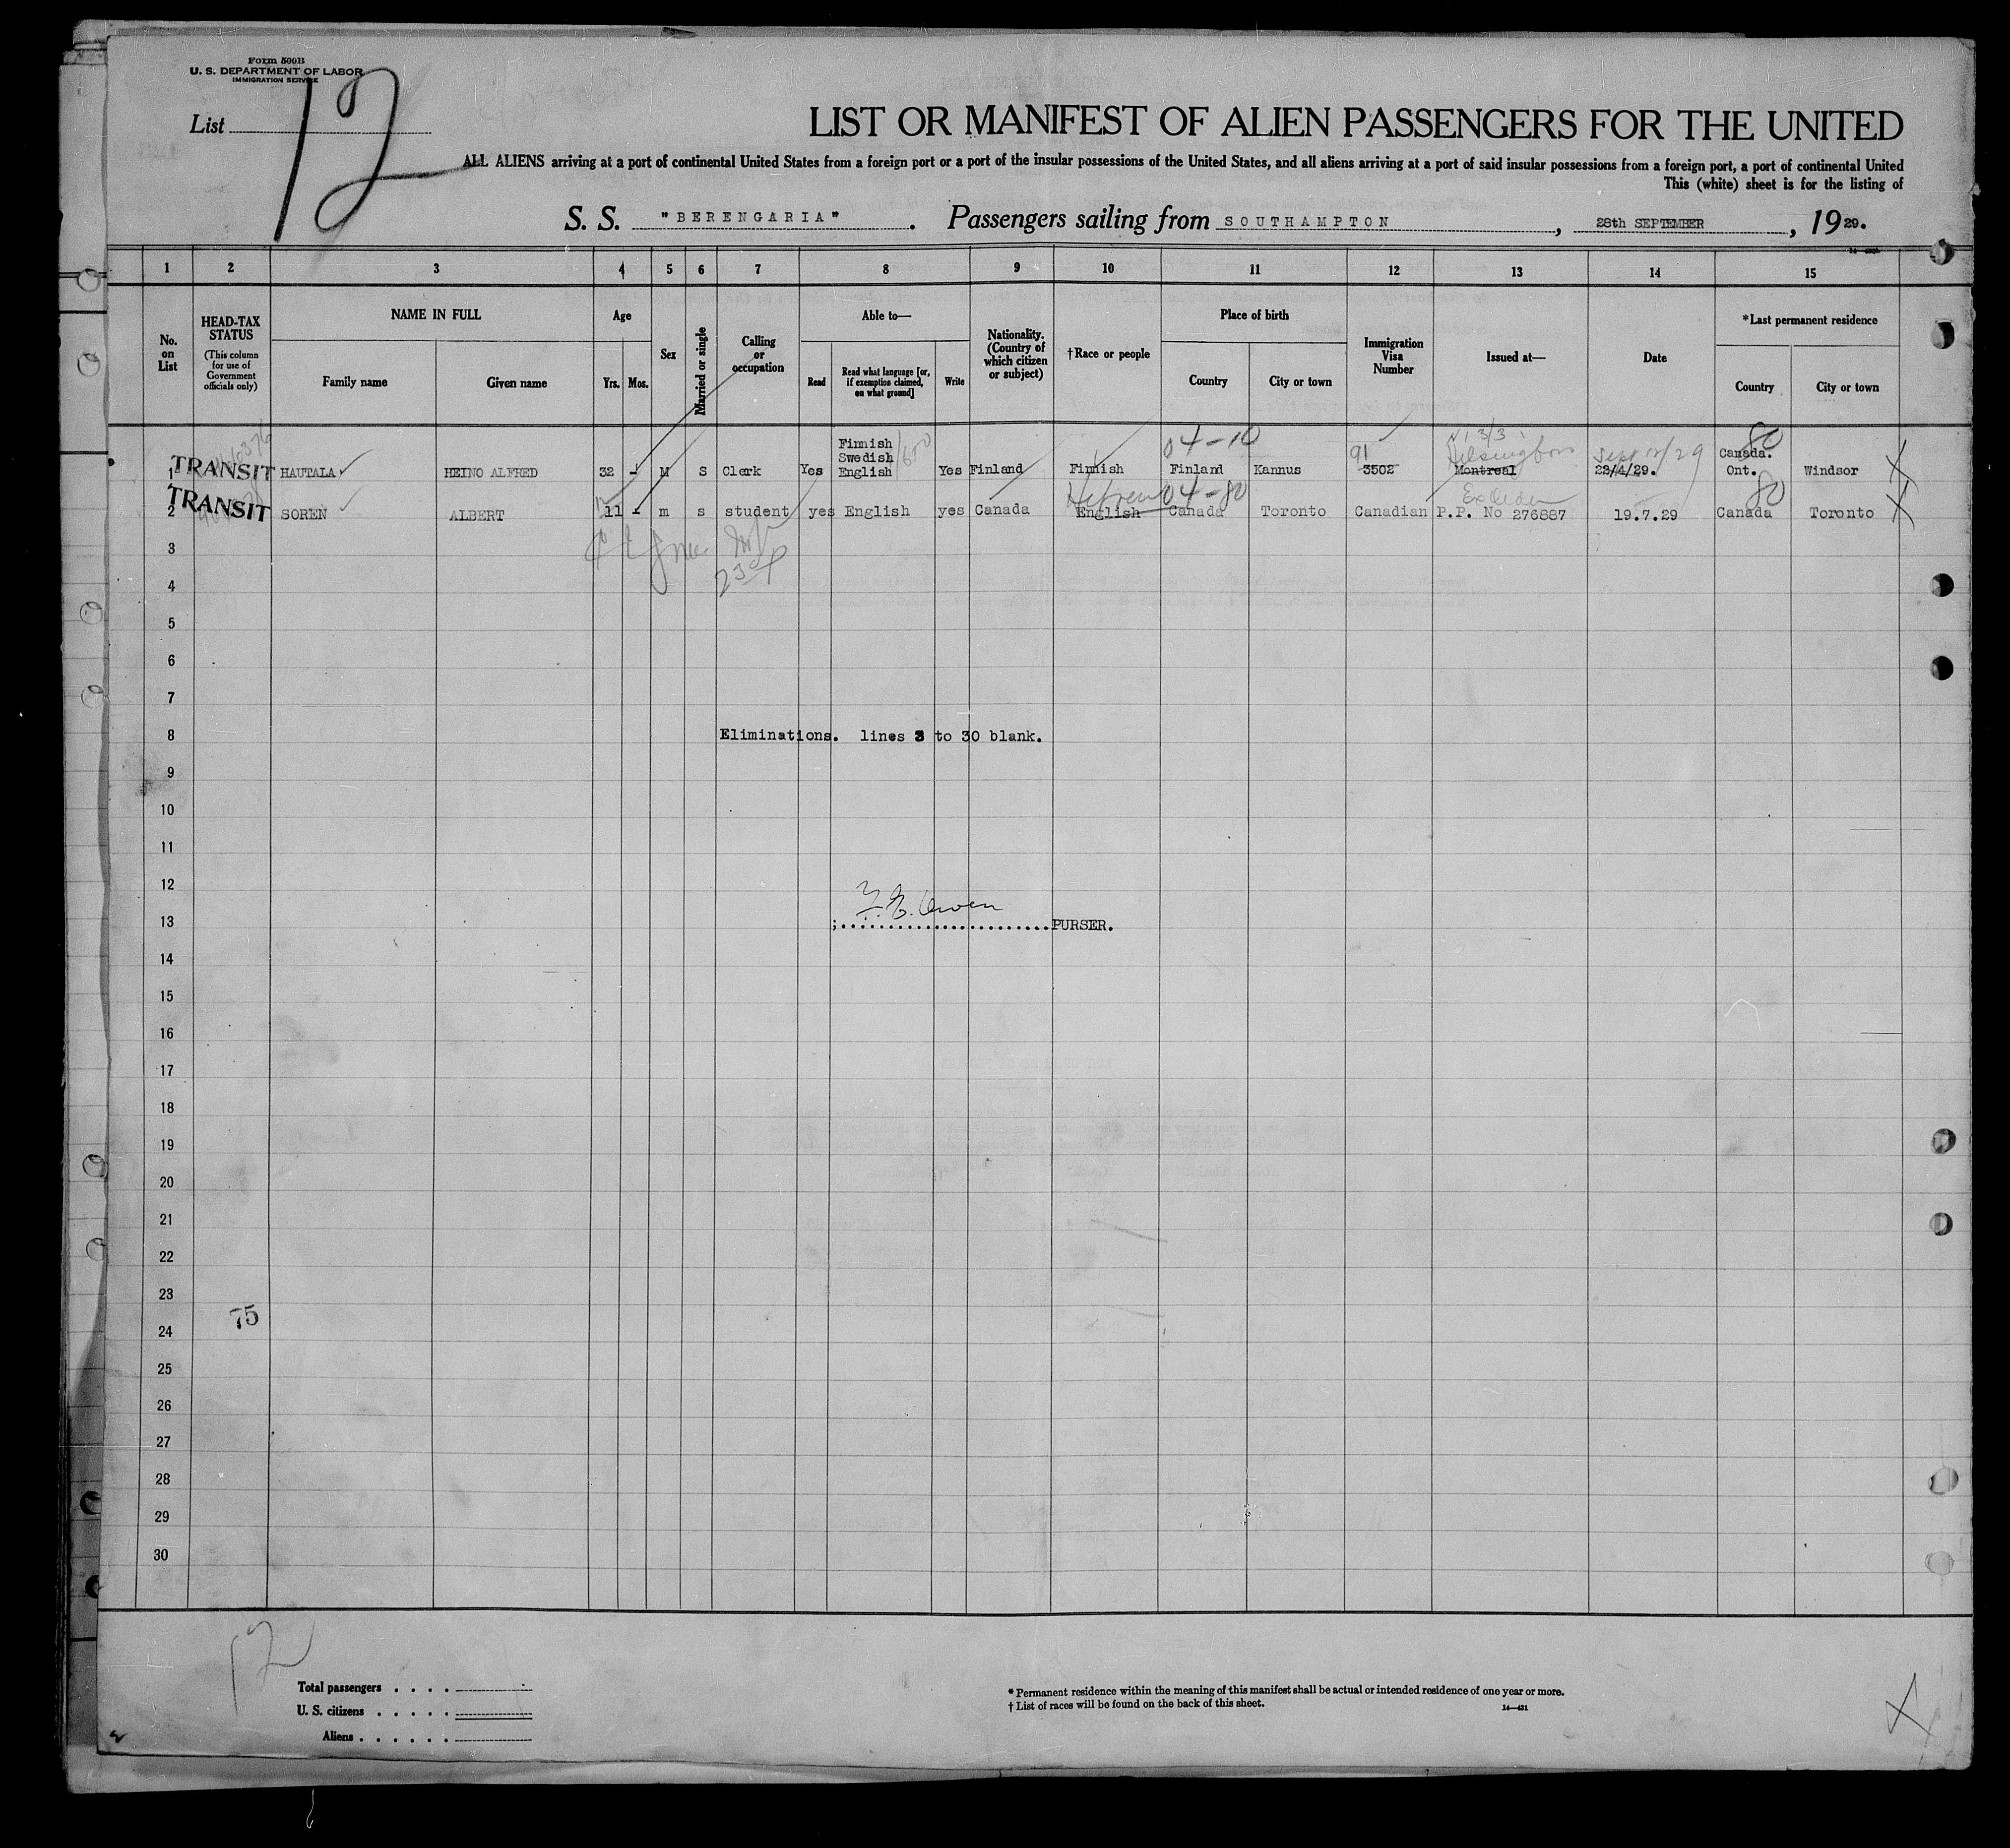 Form 500B
U. S. DEPARTMENT OF LABOR
IMMIGRATION SERVICE
List 12
LIST OR MANIFEST OF ALIEN PASSENGERS FOR THE UNITED
ALL ALIENS arriving at a port of continental United States from a foreign port or a port of the insular possessions of the United States, and all aliens arriving at a port of said insular possessions from a foreign port, a port of continental United
This (white) sheet is for the listing of
S. S. "BERENGARIA". Passengers sailing from SOUTHAMPTON, 28th SEPTEMBER, 1929.
1 2 3 4 5 6 7 8 9 10 11 12 13 14 15
No. on List
HEAD-TAX STATUS
(This column for use of Government officials only)
NAME IN FULL
Family name
Given name
Age
Yrs. Mos.
Sex
Married or single
Calling or occupation
Able to—
Read
Read what language [or, if exemption claimed, on what ground]
Write
Nationality. (Country of which citizen or subject)
†Race or people
Place of birth
Country
City or town
Immigration Visa Number
Issued at—
Date
*Last permanent residence
Country
City or town
04-10 91 80
1 TRANSIT HAUTALA HEINO ALFRED 32 - M S Clerk Yes Finnish Swedish English Yes Finland Finnish Finland Kannus 3502 Helsingfors Montreal Sept 23/4/29. Canada. Ont. Windsor
Hebrew 04-80 80
2 TRANSIT SOREN ALBERT 11 - m s student yes English yes Canada English Canada Toronto Canadian P.P. No 276887 19.7.29 Canada Toronto
3
4
5
6
7
8 Eliminations. lines 3 to 30 blank.
9
10
11
12
13 Owen PURSER.
14
15
16
17
18
19
20
21
22
23
75
24
25
26
27
28
29
30
12
Total passengers . . . .
U. S. citizens . . . . .
Aliens . . . . . .
* Permanent residence within the meaning of this manifest shall be actual or intended residence of one year or more.
† List of races will be found on the back of this sheet.
14—431